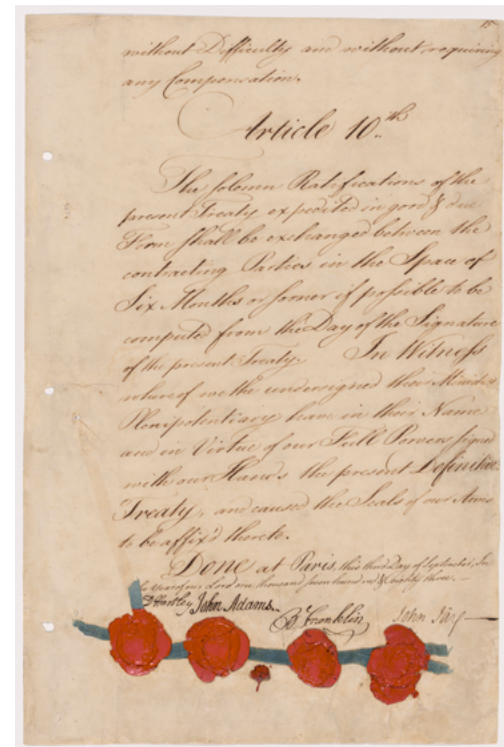 without Difficulty and without requiring
any Compensation.
Article 10.th
The solemn Ratifications of the
present Treaty expedited in good & due
Form shall be exchanged between the
contracting Parties in the Space of
Six Months or sooner if possible to be
computed from the Day of the Signature
of the present Treaty. In Witness
whereof we the undersigned their Ministers
Plenipotentiary have in their Name
and in Virtue of our Full Powers signed
with our Hands the present Definitive
Treaty, and caused the Seals of our Arms
to be affix'd thereto.
Done at Paris, this third Day of September, In
the Year of our Lord one thousand seven hundred & eighty three.
D Hartley John Adams. B Franklin John Jay